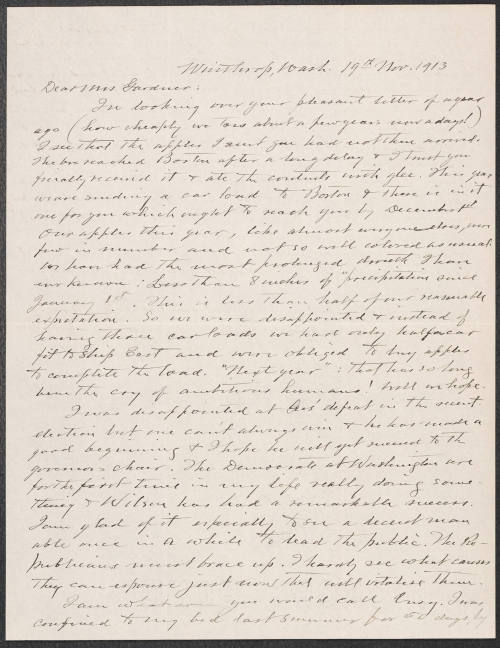 Winthrop, Wash. 19th Nov. 1913
Dear Mrs Gardner:
In looking over your pleasant letter of a year
ago (how cheaply we toss about a few years nowadays!)
I see that the apples I sent you had not then arrived.
The box reached Boston after a long delay & I trust you
finally received it & ate the contents with glee. This year
we are sending a car load to Boston & there is in it
one for you which ought to reach you by December 1st
Our apples this year, like almost everyone else's, were
few in number and not so well colored as usual.
We have had the most prolonged drouth I have
ever known: Less than 8 inches of "precipitation since
January 1st. This is less than half of our reasonable
expectation. So we were disappointed & instead of
having three car loads we had only half a car
fit to ship East and were obliged to buy apples
to complete the load. "Next year": that has so long
been the cry of ambitious humans! Well we hope.
I was disappointed at Gus' defeat in the recent
election but one can't always win & he has made a
good beginning & I hope he will yet succeed to the
governor's chair. The Democrats at Washington are
for the first time in my life really doing some-
thing & Wilson has had a remarkable success.
I am glad of it especially to see a decent man
able once in a while to lead the public. The Re-
publicans must brace up. I hardly see what causes
they can espouse just now that will vitalize them.
I am what you would call busy. I was
confined to my bed last summer for 60 days, by